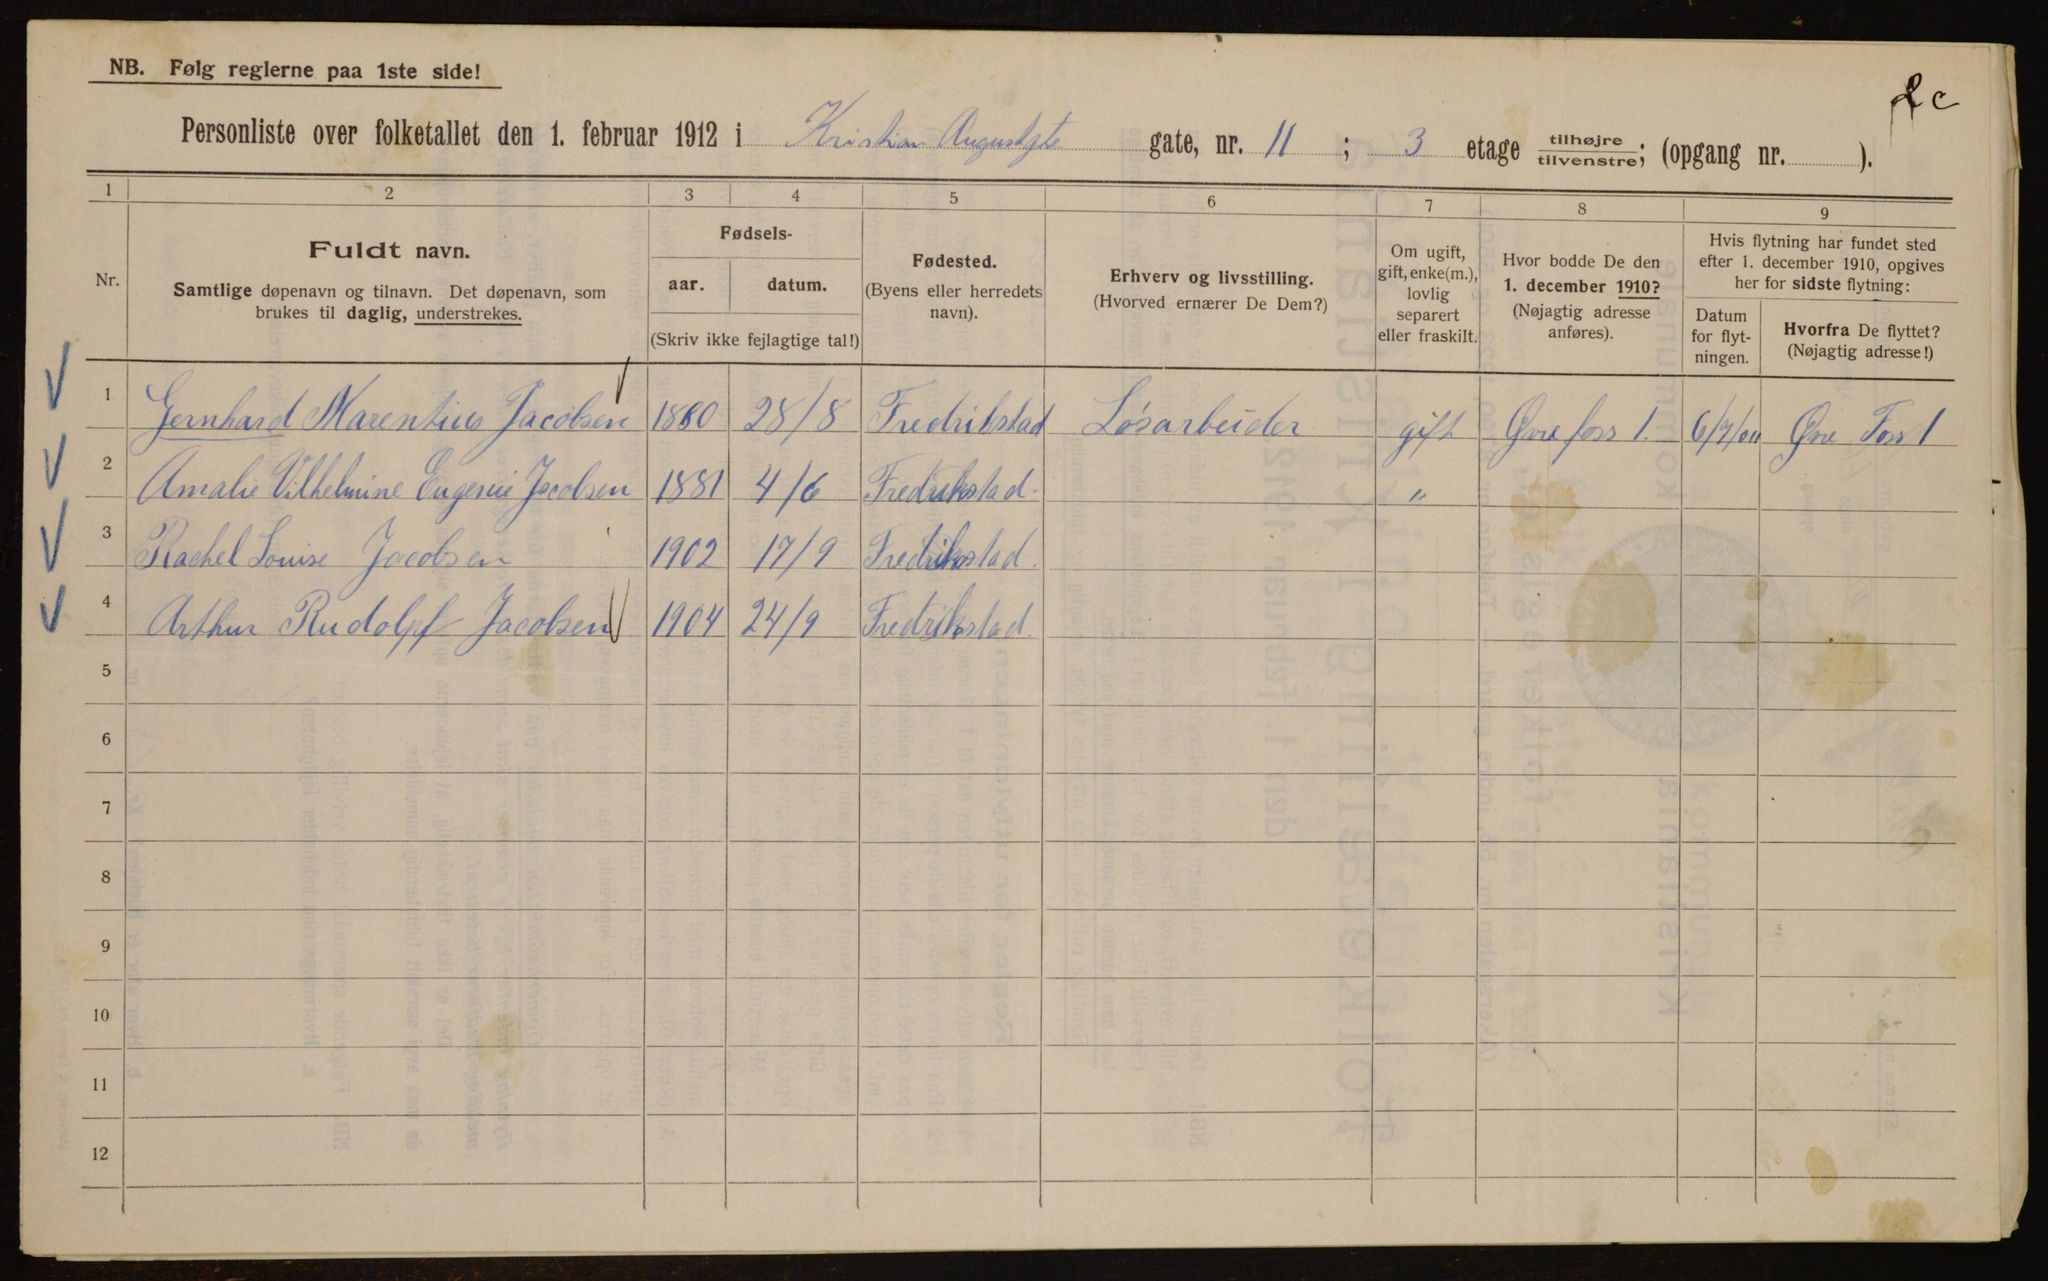 NB. Følg reglerne paa 1ste side!
2 c
Personliste over folketallet den 1. februar 1912 i Kristian Augustgte gate, nr. 11 ; 3 etage tilhøjre/tilvenstre; (opgang nr. ).
1 2 3 4 5 6 7 8 9
Nr.
Fuldt navn.
Samtlige døpenavn og tilnavn. Det døpenavn, som
brukes til daglig, understrekes.
Fødsels-
aar. datum.
(Skriv ikke fejlagtige tal!)
Fødested.
(Byens eller herredets
navn).
Erhverv og livsstilling.
(Hvorved ernærer De Dem?)
Om ugift,
gift, enke(m.),
lovlig
separert
eller fraskilt.
Hvor bodde De den
1. december 1910?
(Nøjagtig adresse
anføres).
Hvis flytning har fundet sted
efter 1. december 1910, opgives
her for sidste flytning:
Datum
for flyt-
ningen.
Hvorfra De flyttet?
(Nøjagtig adresse!)
1 Gernhard Marentius Jacobsen 1880 28/8 Fredrikstad Løsarbeider gift Øvre foss 1. Øvre Foss 1
2 Amalie Vilhelmine Eugenie Jacobsen 1881 4/6 Fredrikstad. "
3 Rachel Louise Jacobsen 1902 17/9 Fredrikstad.
4 Arthur Rudolpf Jacobsen 1904 24/9 Fredrikstad.
5
6
7
8
9
10
11
12